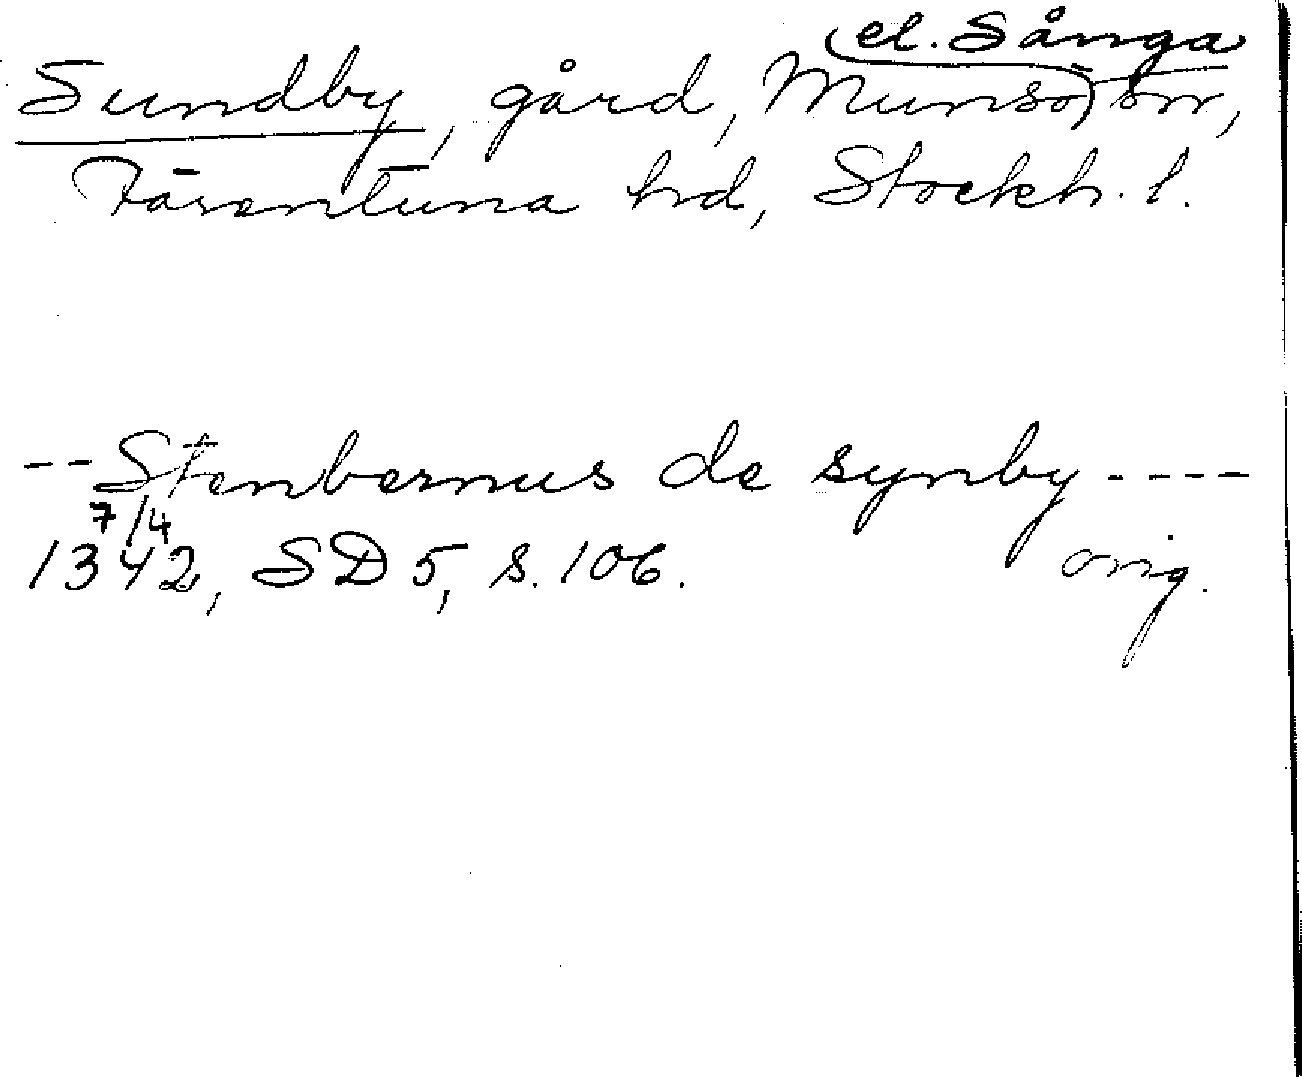 el. Sånga
Sundby, gård, Munsö) sn,
Färentuna hrd, Stockh. l.
-- Stenbernus de synby ----
7/4
1342, SD 5, s. 106. orig.